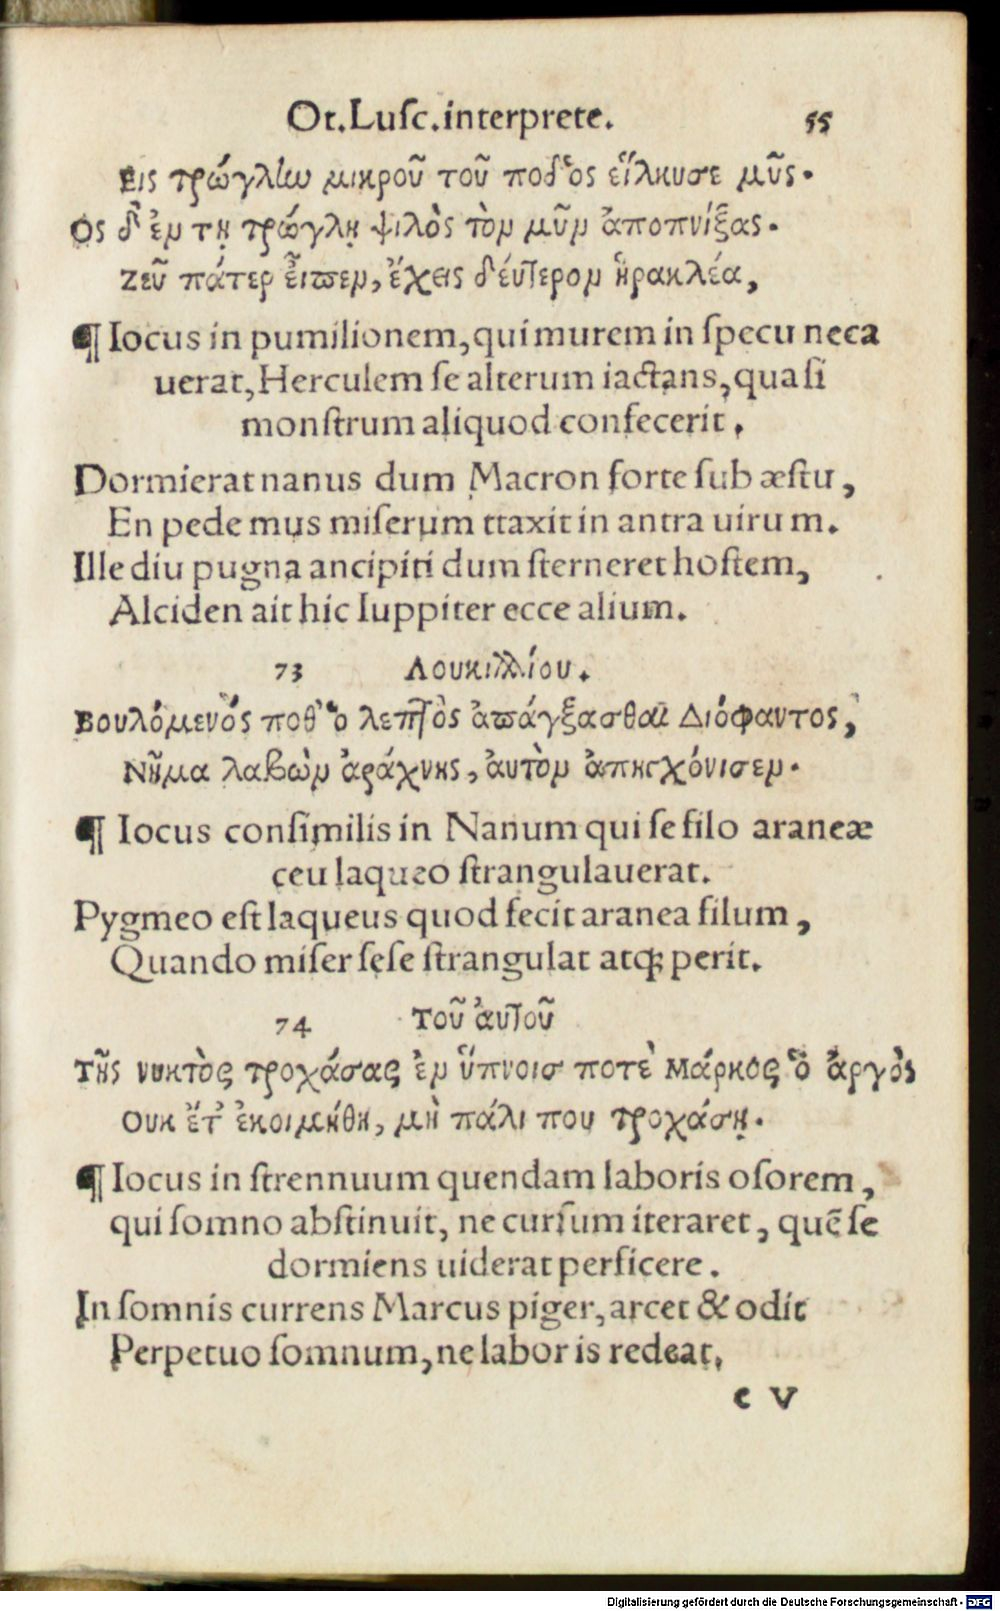 Ot.Lusc.interprete. 55
Εις τρώγλίω μικροῦ τοῦ ποδ̓ὸς εἵλκυσε μῦς.
Ος δ̓ ἐν τῃ τρώγλῃ ψιλὸς τὸν μῦν ἀποπνίξας.
Ζεῦ πάτερ εἶπεν, ἔχεις δεύτερον ἡρακλέα,
¶ Iocus in pumilionem, qui murem in specu neca
uerat, Herculem se alterum iactans, quasi
monstrum aliquod confecerit.
Dormierat nanus dum Macron forte sub æstu,
En pede mus miserum ttaxit in antra uirum.
Ille diu pugna ancipiti dum sterneret hostem,
Alciden ait hic Iuppiter ecce alium.
73 Λουκιλλίου.
Βουλόμενός ποθ' ὁ λεπτὸς ἀπάγξασθαι Διόφαντος,
Νῆμα λαβὼν ἀράχνης, ἀυτὸν ἀπηγχόνισεν.
¶ Iocus consimilis in Nanum qui se filo araneæ
ceu laqueo strangulauerat.
Pygmeo est laqueus quod fecit aranea filum,
Quando miser sese strangulat atqꝫ perit.
74 Τοῦ ἀυτοῦ
Τῆς νυκτὸς τροχάσας ἐν ὕπνοισ ποτὲ Μάρκος ὁ ἀργὸς
Ουκ ἔτ' ἐκοιμήθη, μὴ πάλι που τροχάσῃ.
¶ Iocus in strennuum quendam laboris osorem,
qui somno abstinuit, ne cursum iteraret, quē se
dormiens uiderat perficere.
In somnis currens Marcus piger, arcet & odit
Perpetuo somnum, ne laboris redeat.
c v
Digitalisierung gefördert durch die Deutsche Forschungsgemeinschaft - DFG